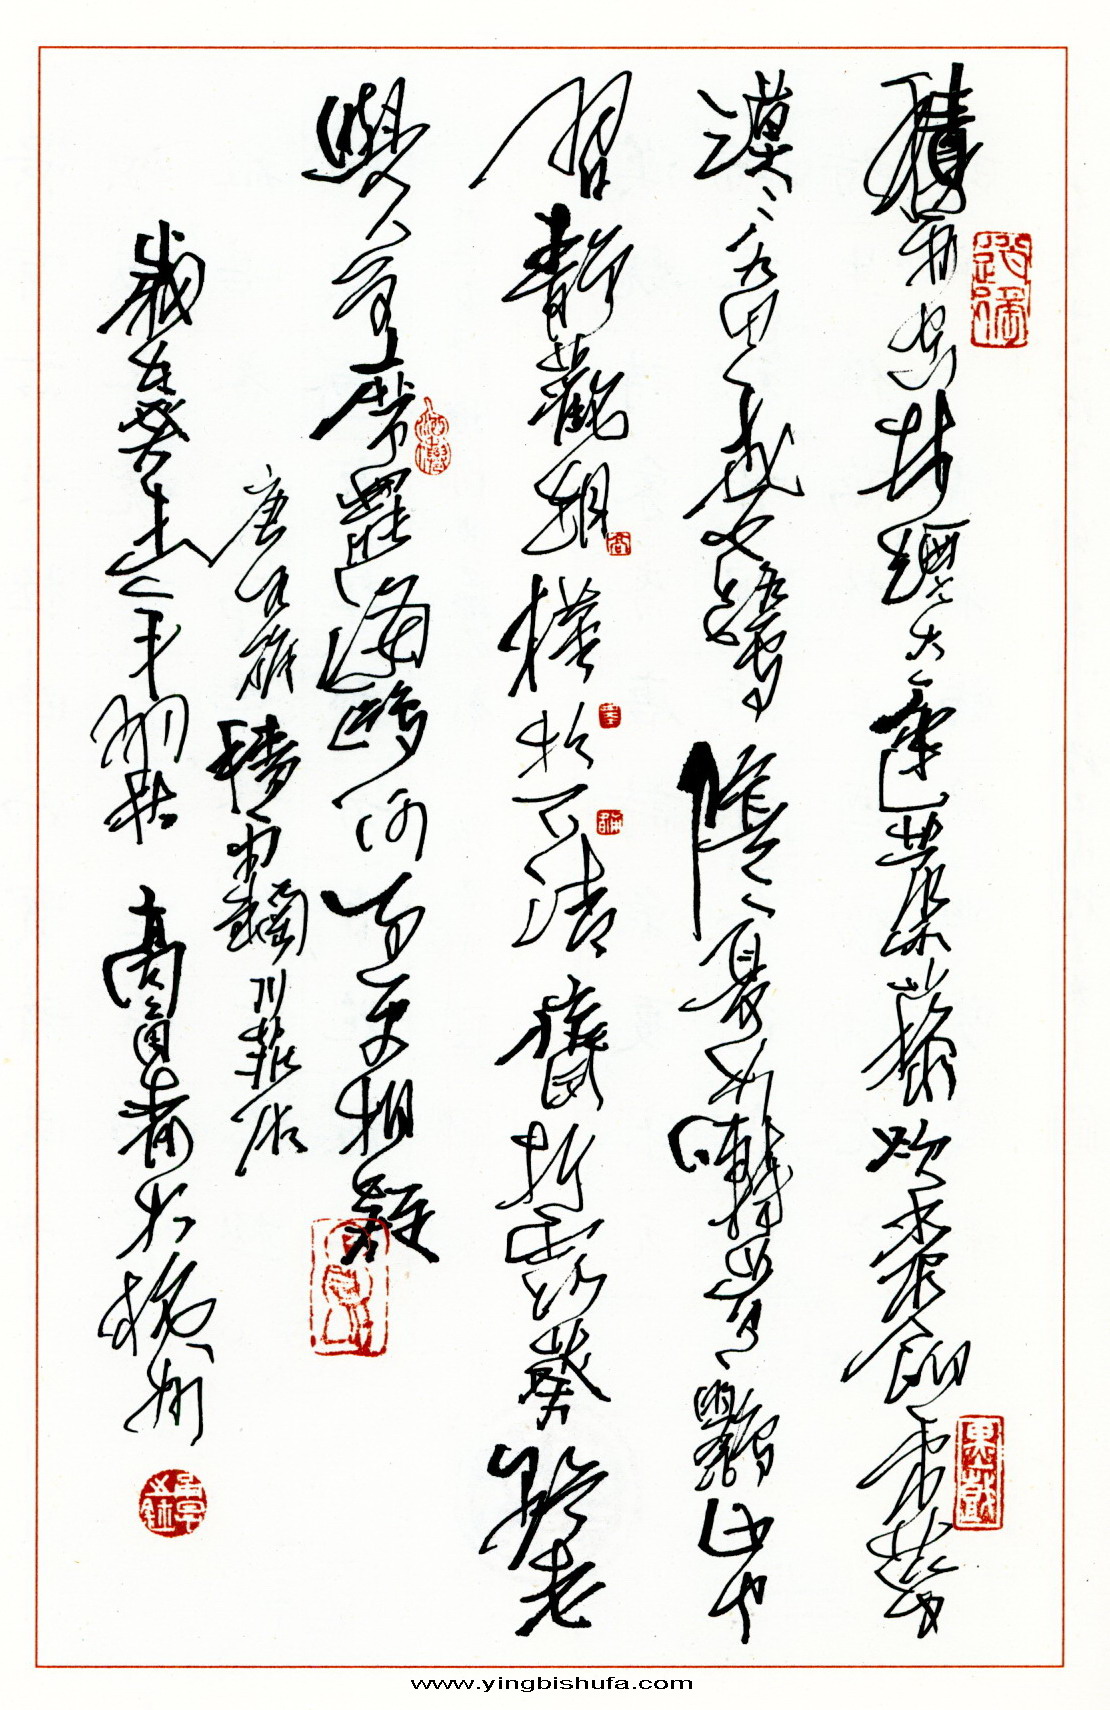 積雨空林煙火遲蒸藜炊黍餉東菑
漠〻水田飛白鷺陰〻夏木囀黃鸝山中
習靜觀朝槿松下清齋折露葵野老
與人爭席罷海鷗何事更相疑
唐王維積雨輞川莊作
歲在癸未之年初秋 高 書於杭州
www.yingbishufa.com